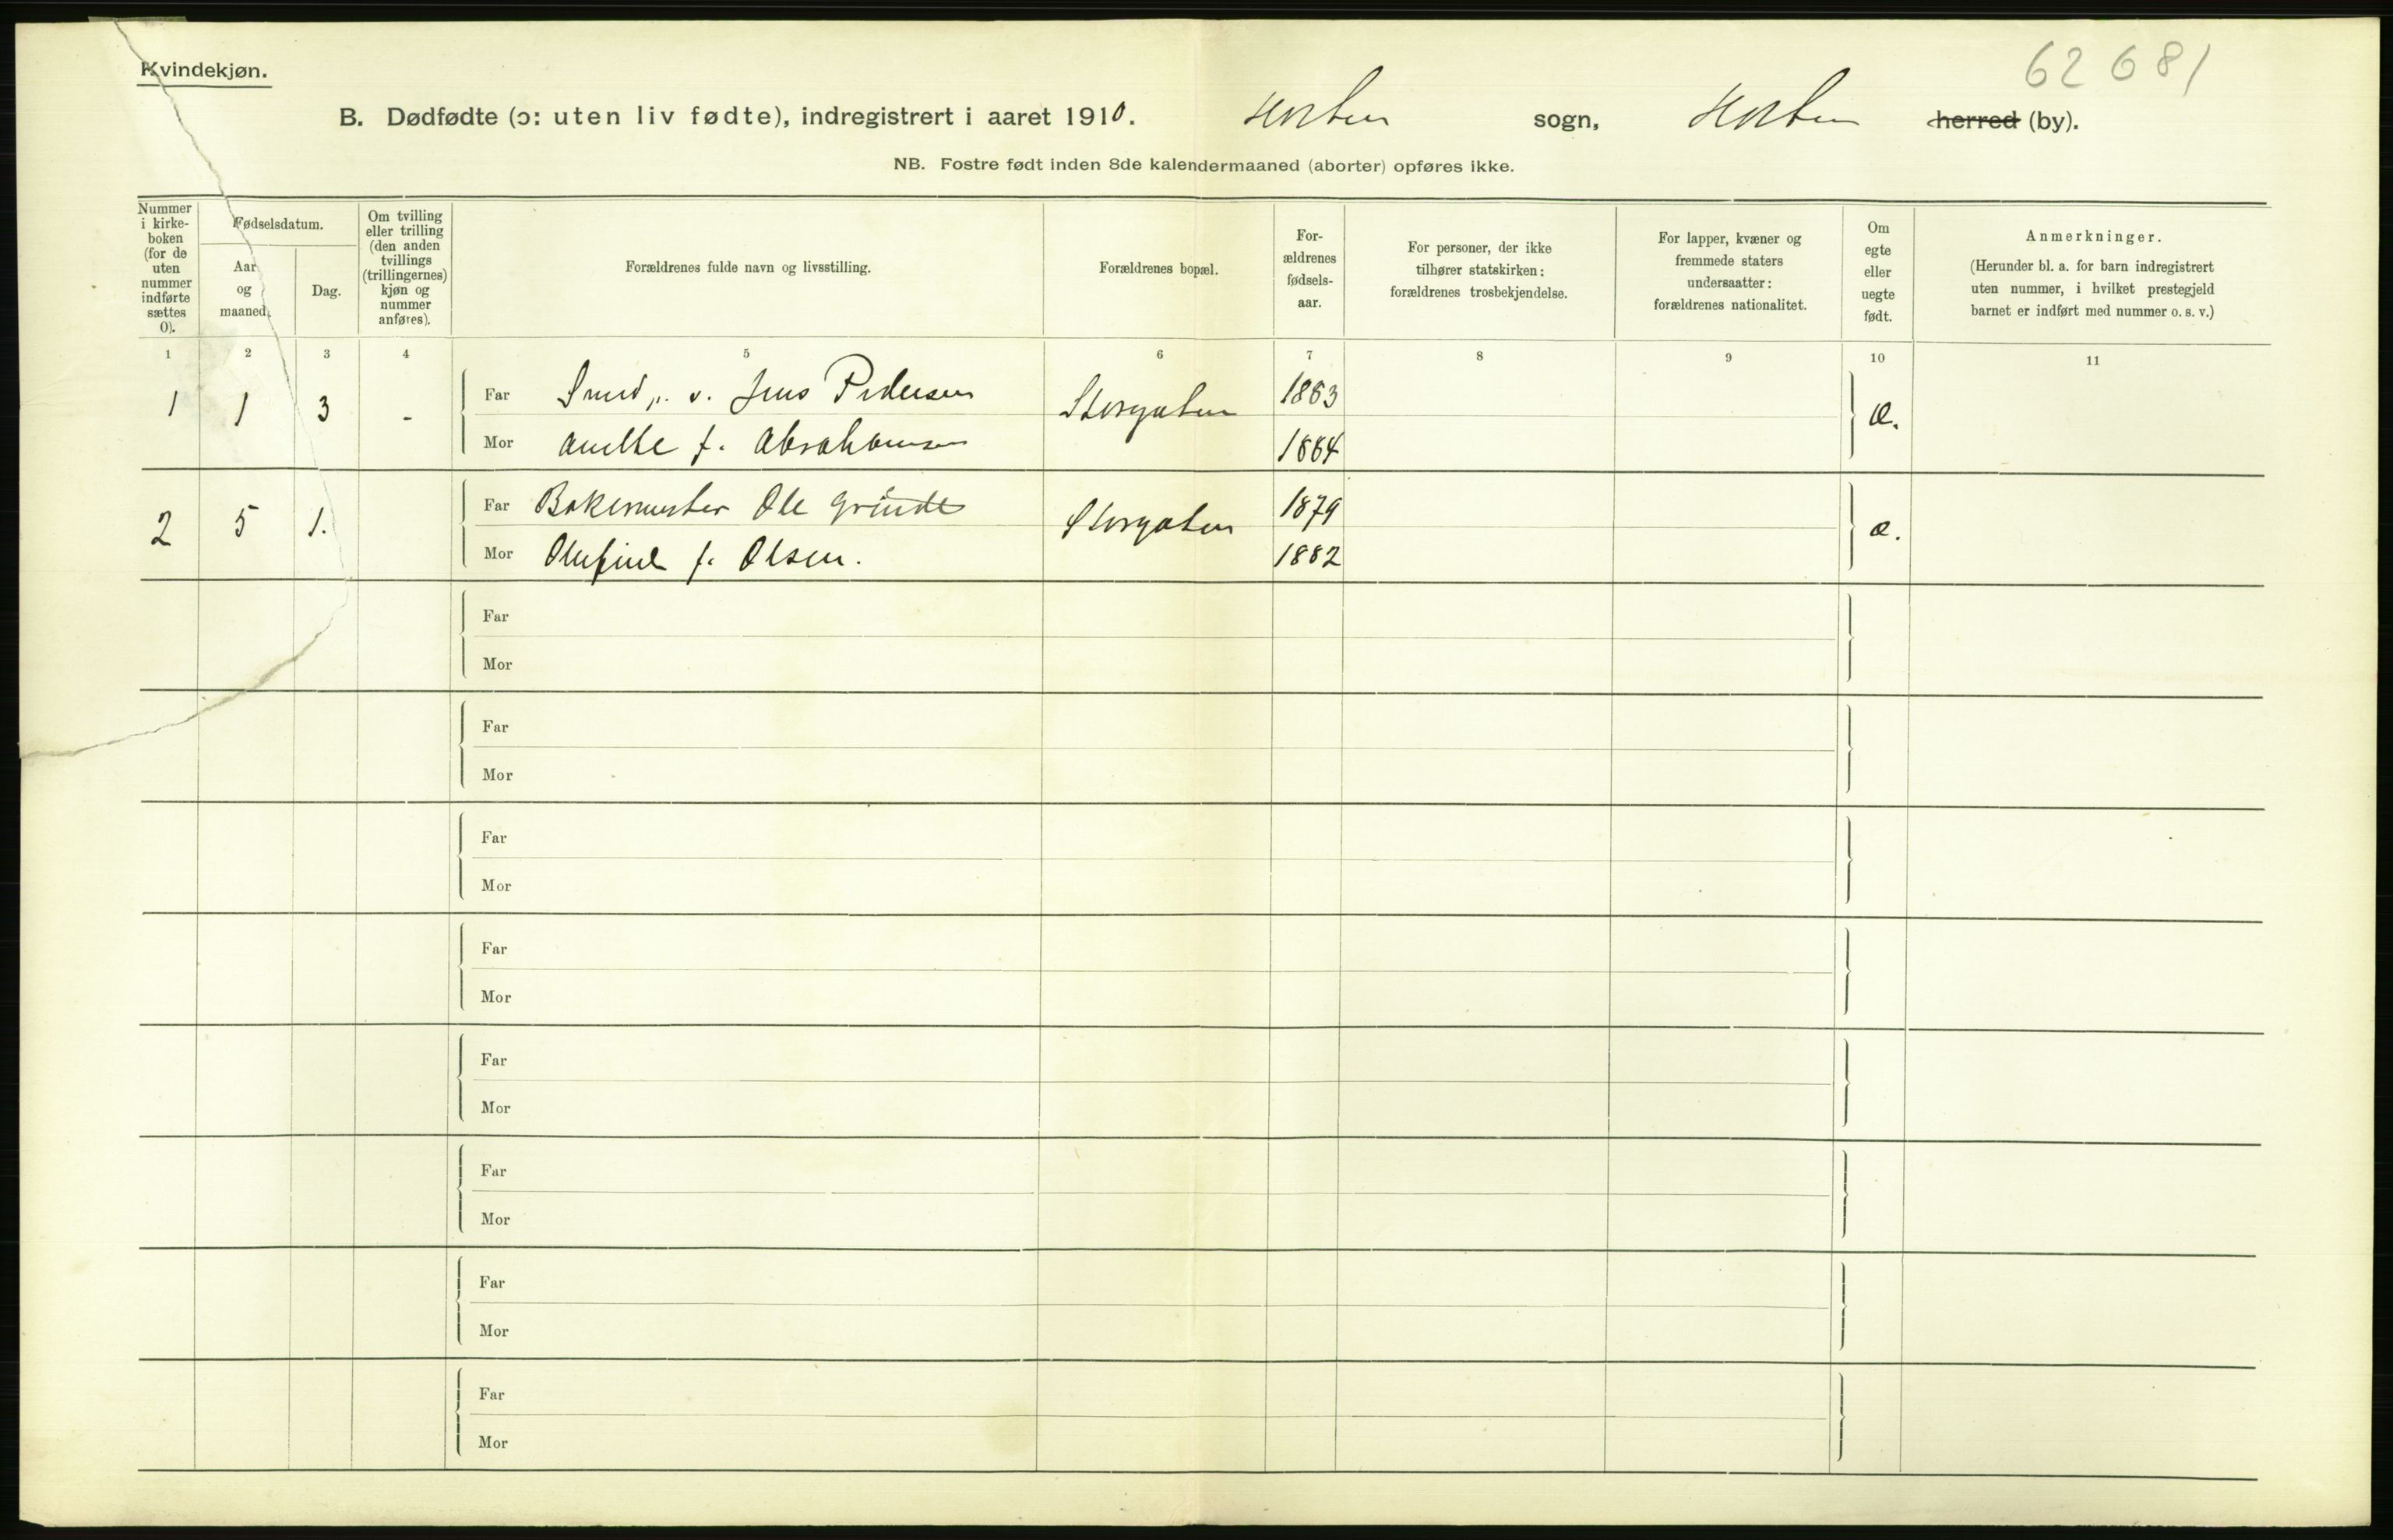 62 681
Kvindekjøn.
B. Dødfødte (ɔ: uten liv fødte), indregistrert i aaret 1910. Horten sogn, Horten herred (by).
NB. Fostre født inden 8de kalendermaaned (aborter) opføres ikke.
Nummer i kirke-boken (for de uten nummer indførte sættes 0).
Fødselsdatum.
Aar og maaned.
Dag.
Om tvilling eller trilling (den anden tvillings (trillingernes) kjøn og nummer anføres).
Forældrenes fulde navn og livsstilling.
Forældrenes bopæl.
For-ældrenes fødsels-aar.
For personer, der ikke tilhører statskirken: forældrenes trosbekjendelse.
For lapper, kvæner og fremmede staters undersaatter: forældrenes nationalitet.
Om egte eller uegte født.
Anmerkninger.
(Herunder bl. a. for barn indregistrert uten nummer, i hvilket prestegjeld barnet er indført med nummer o. s. v.)
1 2 3 4 5 6 7 8 9 10 11
1 1 3 - Far Smed v. Jens Pedersen Storgaten 1883 æ.
Mor Anette f. Abrahamsen 1884
2 5 1. Far Bakermester Ole Grinde Storgaten 1879 æ.
Mor Olufine f. Olsen. 1882
Far
Mor
Far
Mor
Far
Mor
Far
Mor
Far
Mor
Far
Mor
Far
Mor
Far
Mor